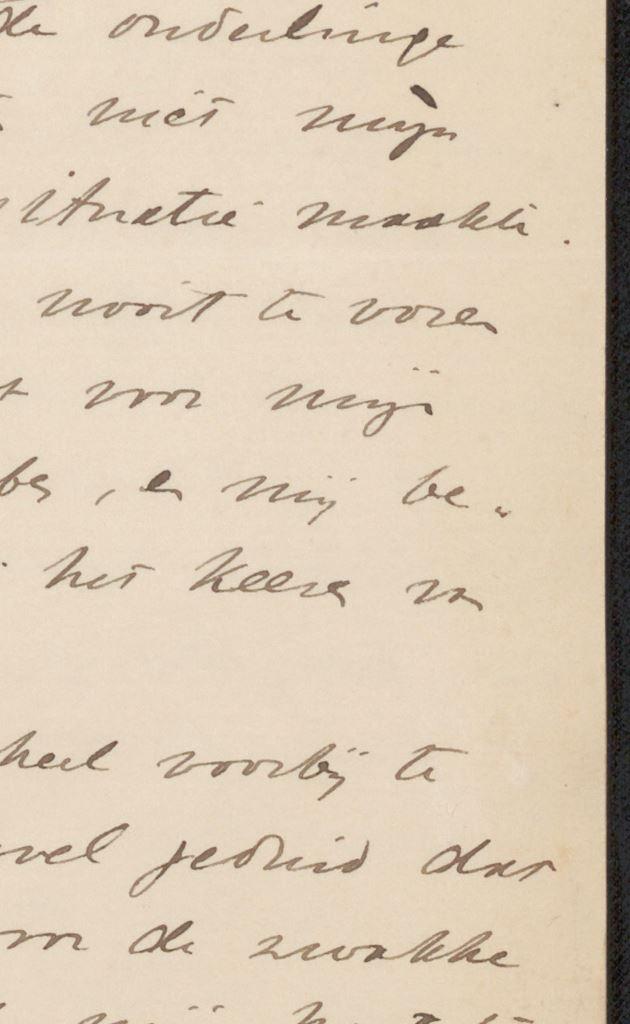 de onderlinge
niet mijn
situatie maakte.
nooit te voren
voor mijn
, en mij be„
het keeren van
heel voorbij te
wel geduid dat
voor de zwakke